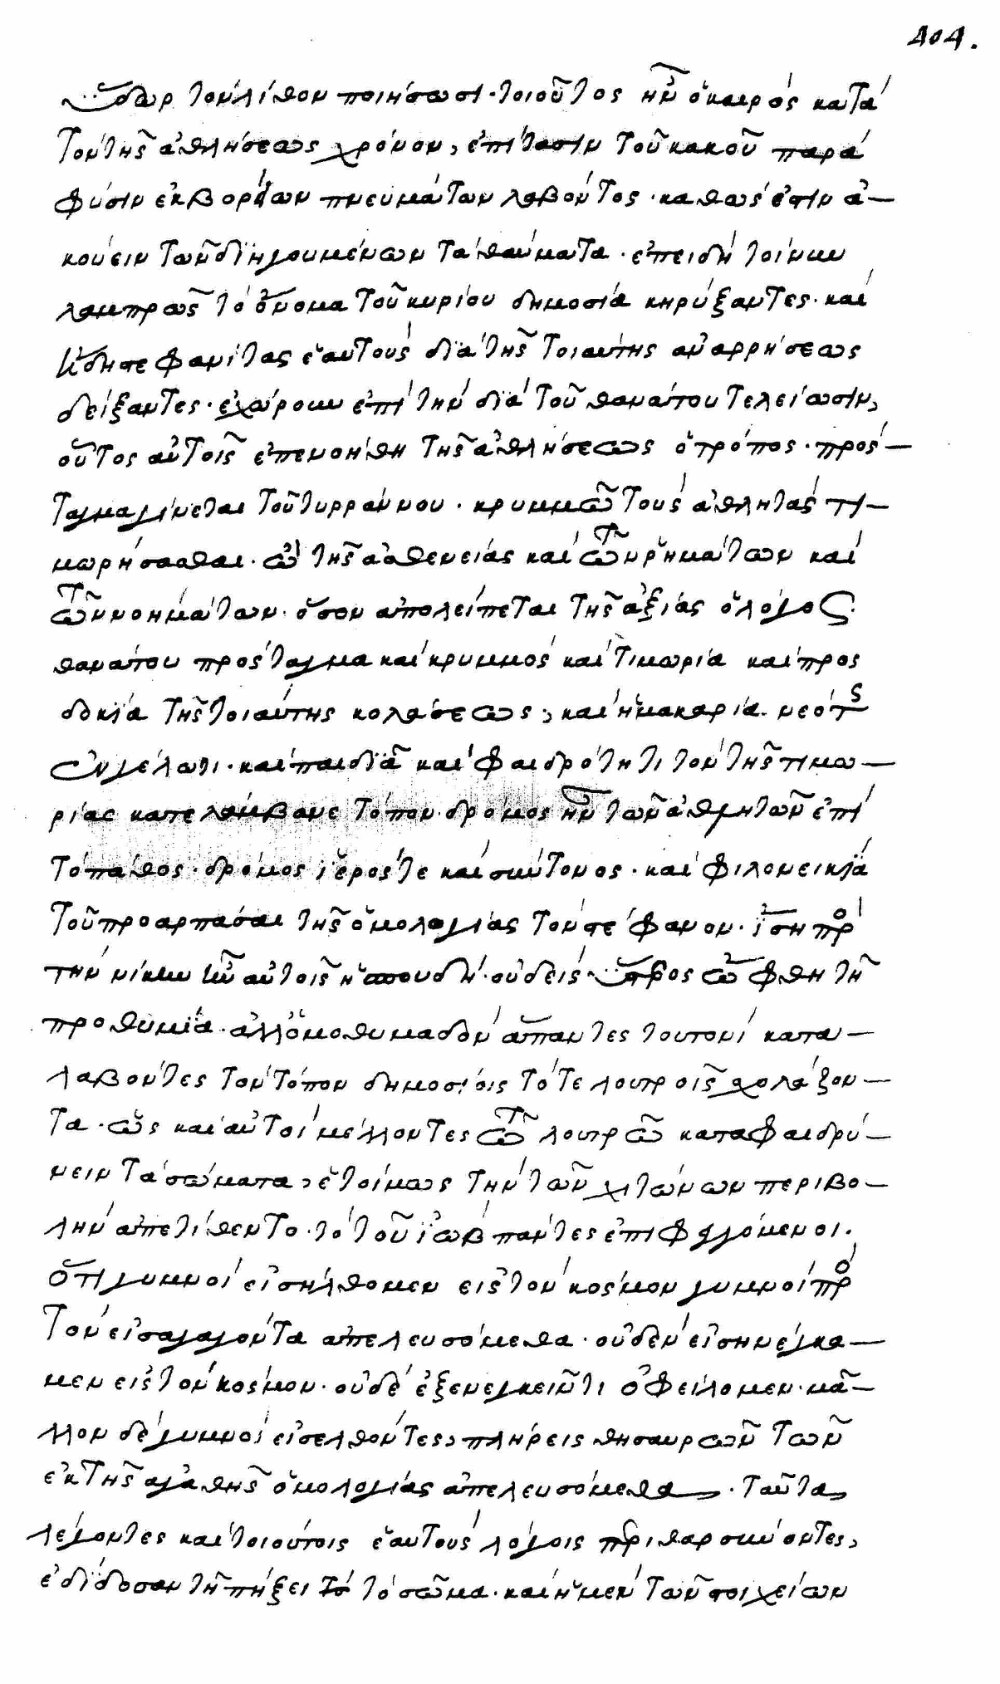 404.
ὕδωρ τὸν λίθον ποιήσωσι· τοιοῦτος ἦν ὁ καιρὸς κατὰ
τὸν τῆς ἀθλήσεως χρόνον, ἐπίτασιν τοῦ κακοῦ παρὰ
φύσιν ἐκ βορείων πνευμάτων λαβόντος· καθώς ἐστιν ἀ-
κούειν τῶν διηγουμένων τὰ θαύματα· ἐπειδὴ τοίνυν
λαμπρῶς τὸ ὄνομα τοῦ κυρίου δημοσία κηρύξαντες· καὶ
στεφανίτας ἑαυτοὺς διὰ τῆς τοιαύτης ἀναρρήσεως
δείξαντες· ἐχώρουν ἐπὶ τὴν διὰ τοῦ θανάτου τελείωσιν,
οὗτος αὐτοῖς ἐπενοήθη τῆς ἀθλήσεως ὁ τρόπος· πρόσ-
ταγμα γίνεται τοῦ τυρράννου· κρυμμῶ τοὺς ἀθλητὰς τι-
μωρήσασθαι· ὢ τῆς ἀσθενείας καὶ τῶν ῥημάτων καὶ
τῶν νοημάτων· ὅσον ἀπολείπεται τῆς ἀξίας ὁ λόγος·
θανάτου πρόσταγμα καὶ κρυμμὸς καὶ τιμωρία καὶ προσ
δοκία τῆς τοιαύτης κολάσεως, καὶ ἡ μακαρία νεότης
σὺν γέλωτι· καὶ παιδιᾶ καὶ φαιδρότητι τὸν τῆς τιμω-
ρίας κατελάμβανε τόπον· δρόμος ἦν τῶν ἀθλητῶν ἐπὶ
τὸ πάθος· δρόμος ἱερός τε καὶ σύντονος· καὶ φιλονεικία
τοῦ προαρπάσαι τῆς ὁμολογίας τὸν στέφανον· ἴση πρὸς
τὴν νίκην ἦν αὐτοῖς ἡ σπουδή· οὐδεὶς ὕστερος ὤφθη τῆ
προθυμία· ἀλλ' ὁμοθυμαδὸν ἅπαντες τουτονὶ κατα-
λαβόντες τὸν τόπον δημοσίοις τότε λουτροῖς σχολάζον-
τα· ὡς καὶ αὐτοὶ μέλλοντες τῶ λουτρῶ καταφαιδρύ-
νειν τὰ σώματα, ἑτοίμως τὴν τῶν χιτώνων περιβο-
λὴν ἀπετίθεντο· τὸ τοῦ ἰὼβ πάντες ἐπιφθεγγόμενοι·
ὅτι γυμνοὶ εἰσήλθομεν εἰς τὸν κόσμον γυμνοὶ πρὸς
τὸν εἰσαγαγόντα ἀπελευσόμεθα· οὐδὲν εἰσηνέγκα-
μεν εἰς τὸν κόσμον· οὐδὲ ἐξενεγκεῖν τι ὀφείλομεν· μᾶ-
λλον δὲ γυμνοὶ εἰσελθόντες, πλήρεις θησαυρῶν τῶν
ἐκ τῆς ἀγαθῆς ὁμολογίας ἀπελευσόμεθα· ταῦτα
λέγοντες καὶ τοιούτοις ἑαυτοὺς λόγοις
ἐδίδοσαν τῆ πήξει τὸ σῶμα· καὶ ἡ μὲν τῶν στοιχείων